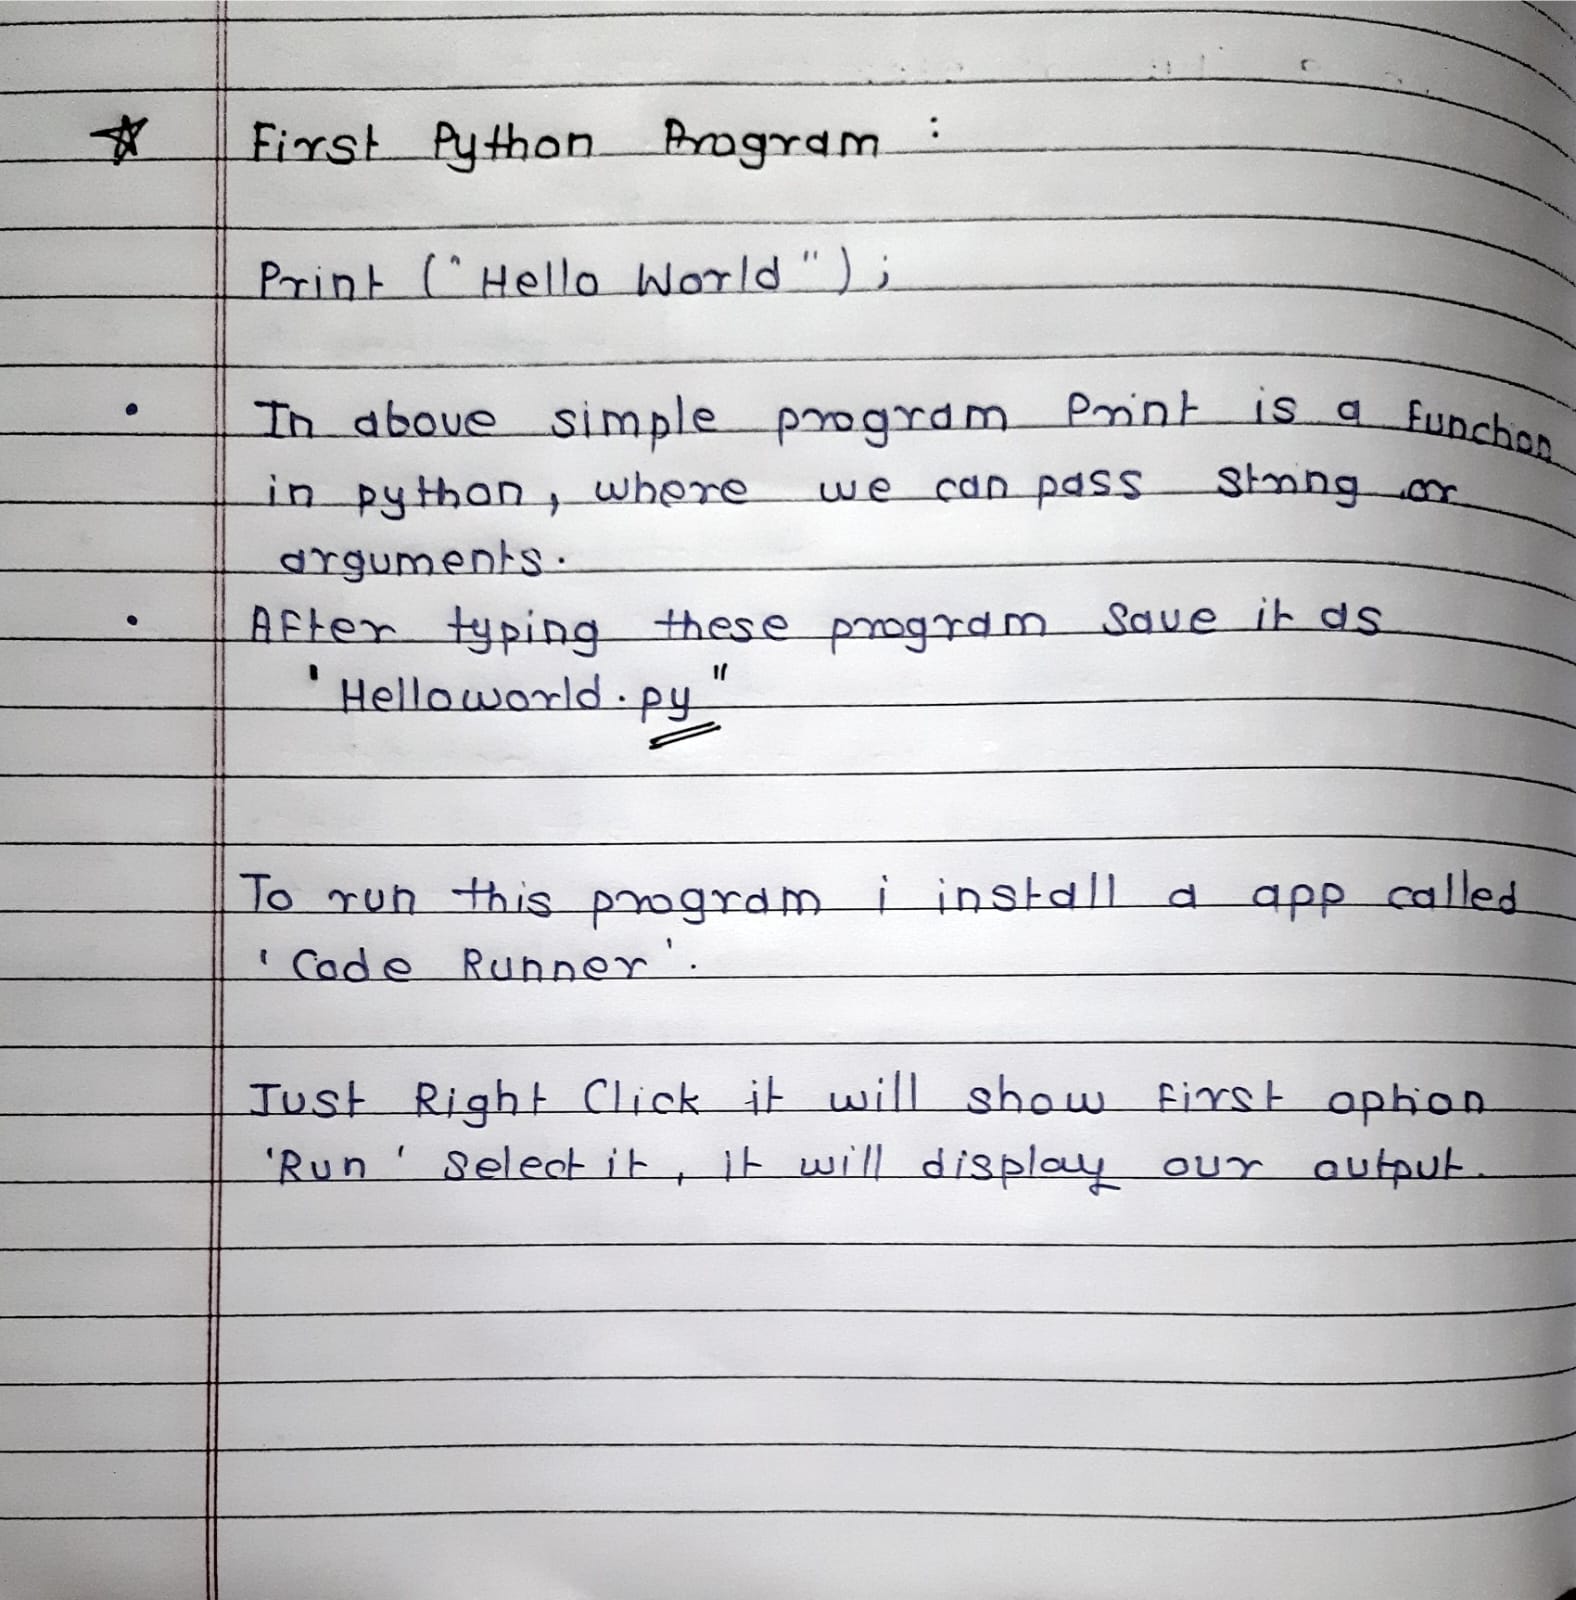 ☆ First Python Program :
Print ("Hello World");
• In above simple program Print is a function
in python, where we can pass string or
arguments.
• After typing these program save it as
'Helloworld.py"
To run this program i install a app called
'Code Runner'.
Just Right Click it will show first option
'Run' Select it, it will display our output.